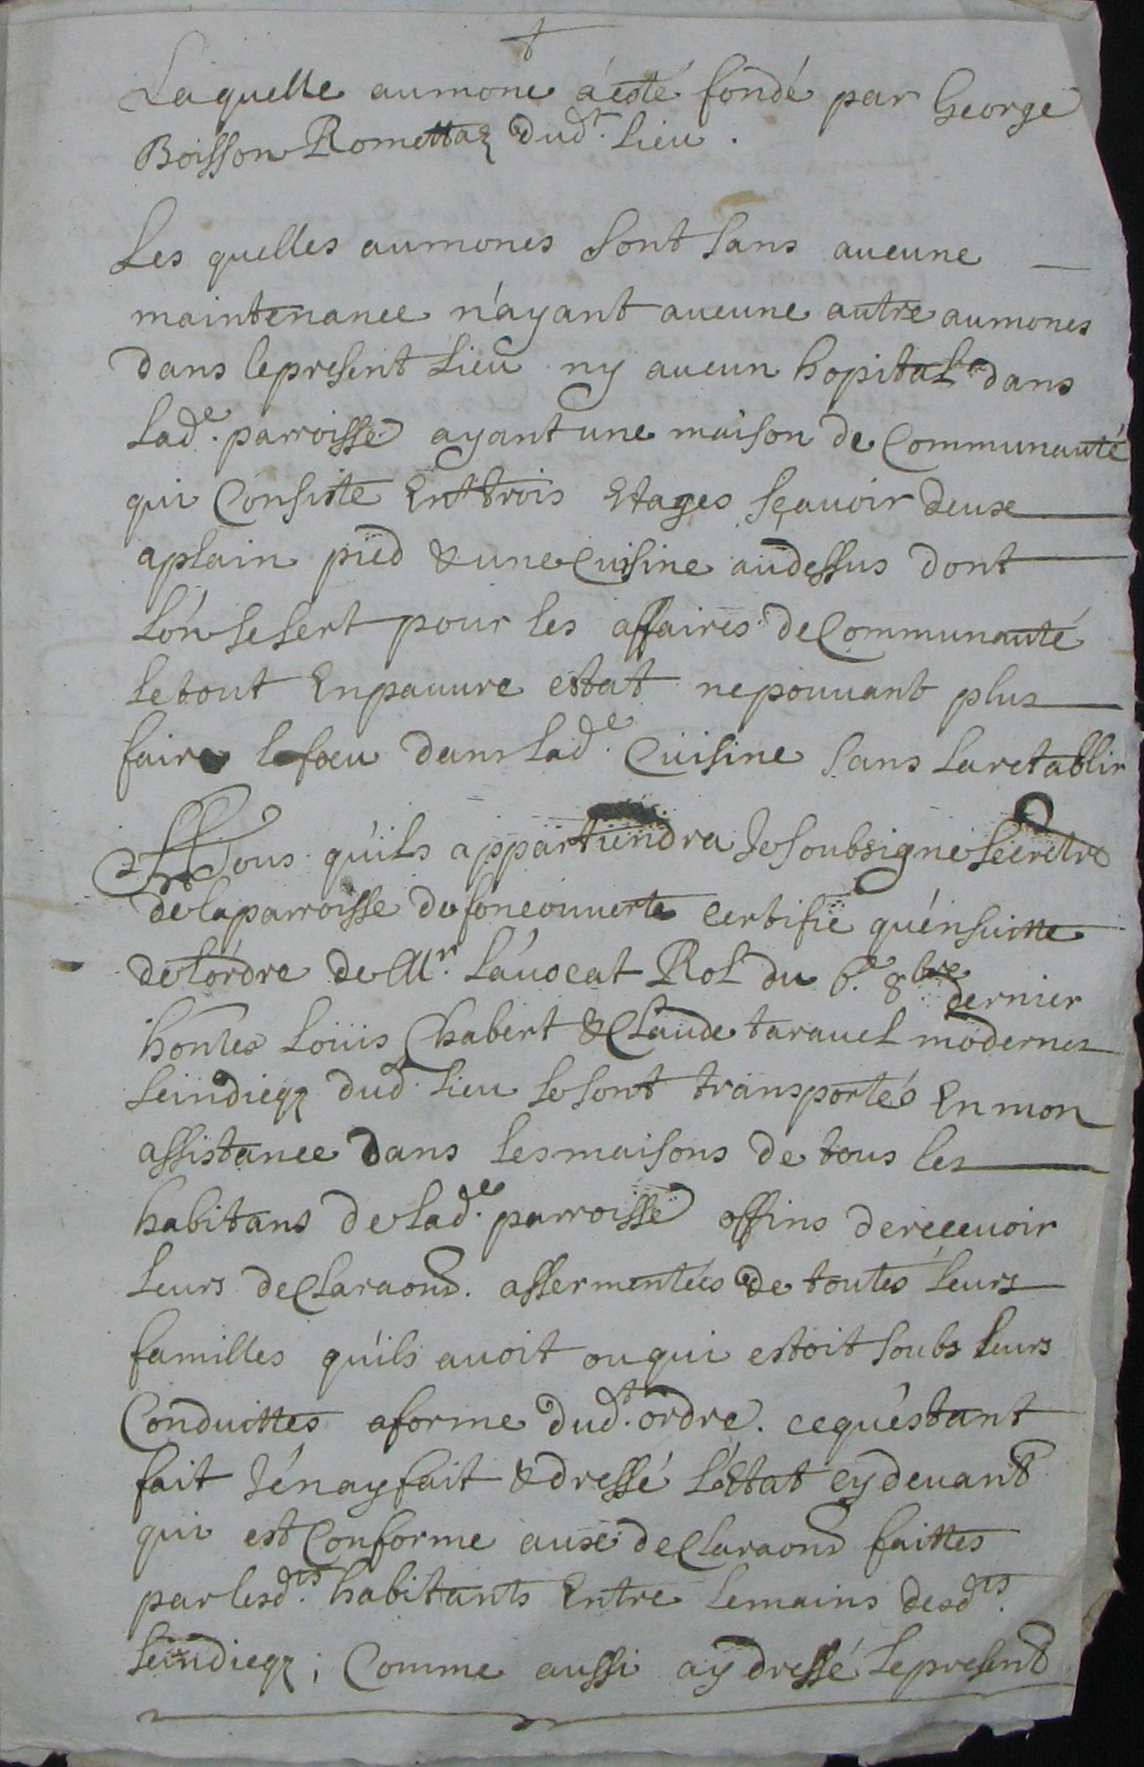 Laquelle aumone a'esté fondé par George
Boisson Romettaz dudt. Lieu.
Les quelles aumones sont sans aucune
maintenance n'ayant aucune autre aumones
dans le present Lieu ny aucun hopital dans
lade. parroisse ayant une maison de Communauté
qui Consiste En trois Etages sçauoir deux
aplain pied & une Cuisine audessus dont
l'on se sert pour les affaires de Communauté
le tout En pauure estat ne pouuant plus
faire le foeu dans lade. Cuisine sans la retablir
A Tous qu'ils appartiendra Je soubsigné secretre
de la parroisse de foncouuerte certifie qu'ensuitte
de l'ordre de Mr. l'auocat Rol du 6e. 8bre dernier
hontes Loüis Chabert & Claude tarauel modernes
seindicqz dud Lieu se sont transportés En mon
assistance dans les maisons de tous les
habitans de lade. parroisse affins de receuoir
leurs declaraons. assermentées de toutes leurs
familles qu'ils auoit ou qui estoit soubs leurs
Conduittes a forme dudt. ordre. ce qu'estant
fait J'en ay fait & dressé l'Etat cy deuant
qui est Conforme aux declaraons faittes
par lesdts. habitants Entre le mains desdts.
seindicqz; Comme aussi ay dressé le present